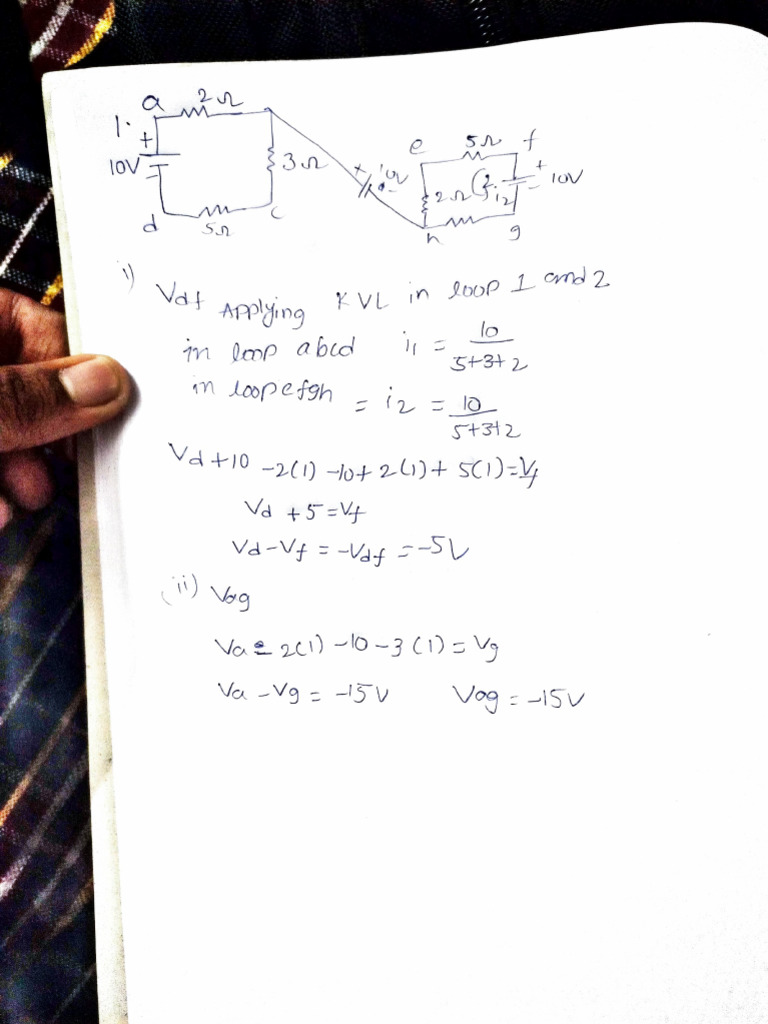 1.
a 2Ω
+
10V
3Ω
+ 10V -
d 5Ω c
e 5Ω f
2Ω i2 + 10V
h g
i) Vdf Applying KVL in loop 1 and 2
in loop abcd i1 = 10/5+3+2
in loop efgh = i2 = 10/5+3+2
Vd +10 -2(1) -10+ 2(1)+ 5(1)=Vf
Vd +5 =Vf
Vd-Vf = -Vdf = -5V
(ii) Vag
Va - 2(1) -10 -3(1) = Vg
Va -Vg = -15V Vag = -15V